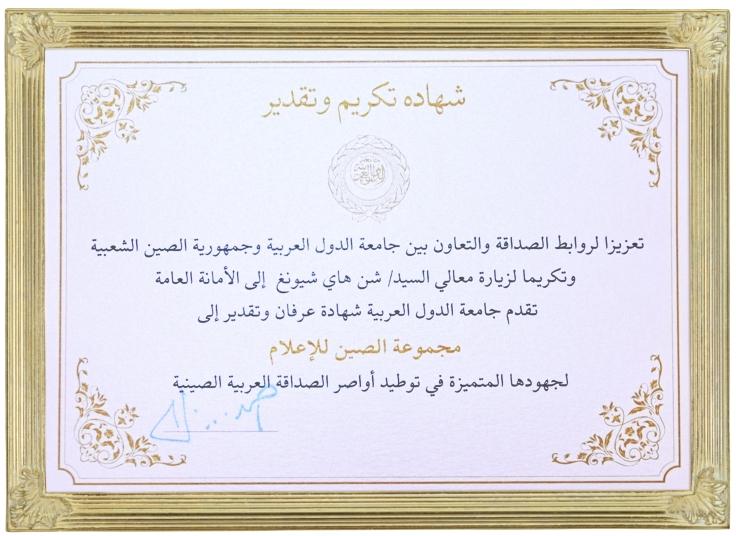 شهاده تكريم وتقدير
تعزيزا لروابط الصداقة والتعاون بين جامعة الدول العربية وجمهورية الصين الشعبية
وتكريما لزيارة معالي السيد/ شن هاي شيونغ إلى الأمانة العامة
تقدم جامعة الدول العربية شهادة عرفان وتقدير إلى
مجموعة الصين للإعلام
لجهودها المتميزة في توطيد أواصر الصداقة العربية الصينية